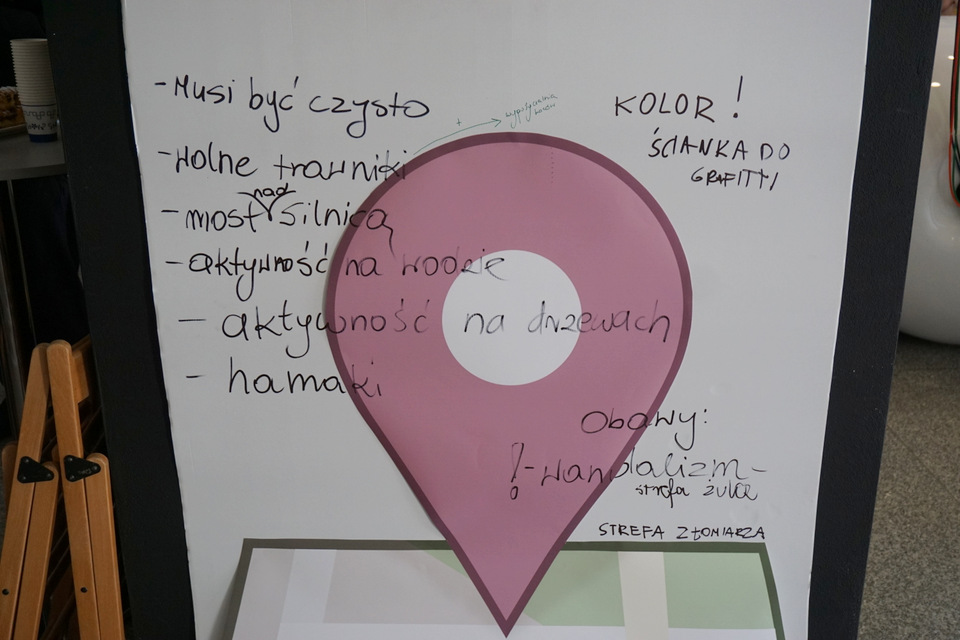 - Musi być czysto
- wolne trawniki
+
- most nad Silnicą
- aktywność na wodzie
- aktywność na drzewach
- hamaki
KOLOR!
ŚCIANKA DO
GRAFITTI
Obawy:
! - wandalizm -
strefa żula
STREFA ZŁOMIARZA